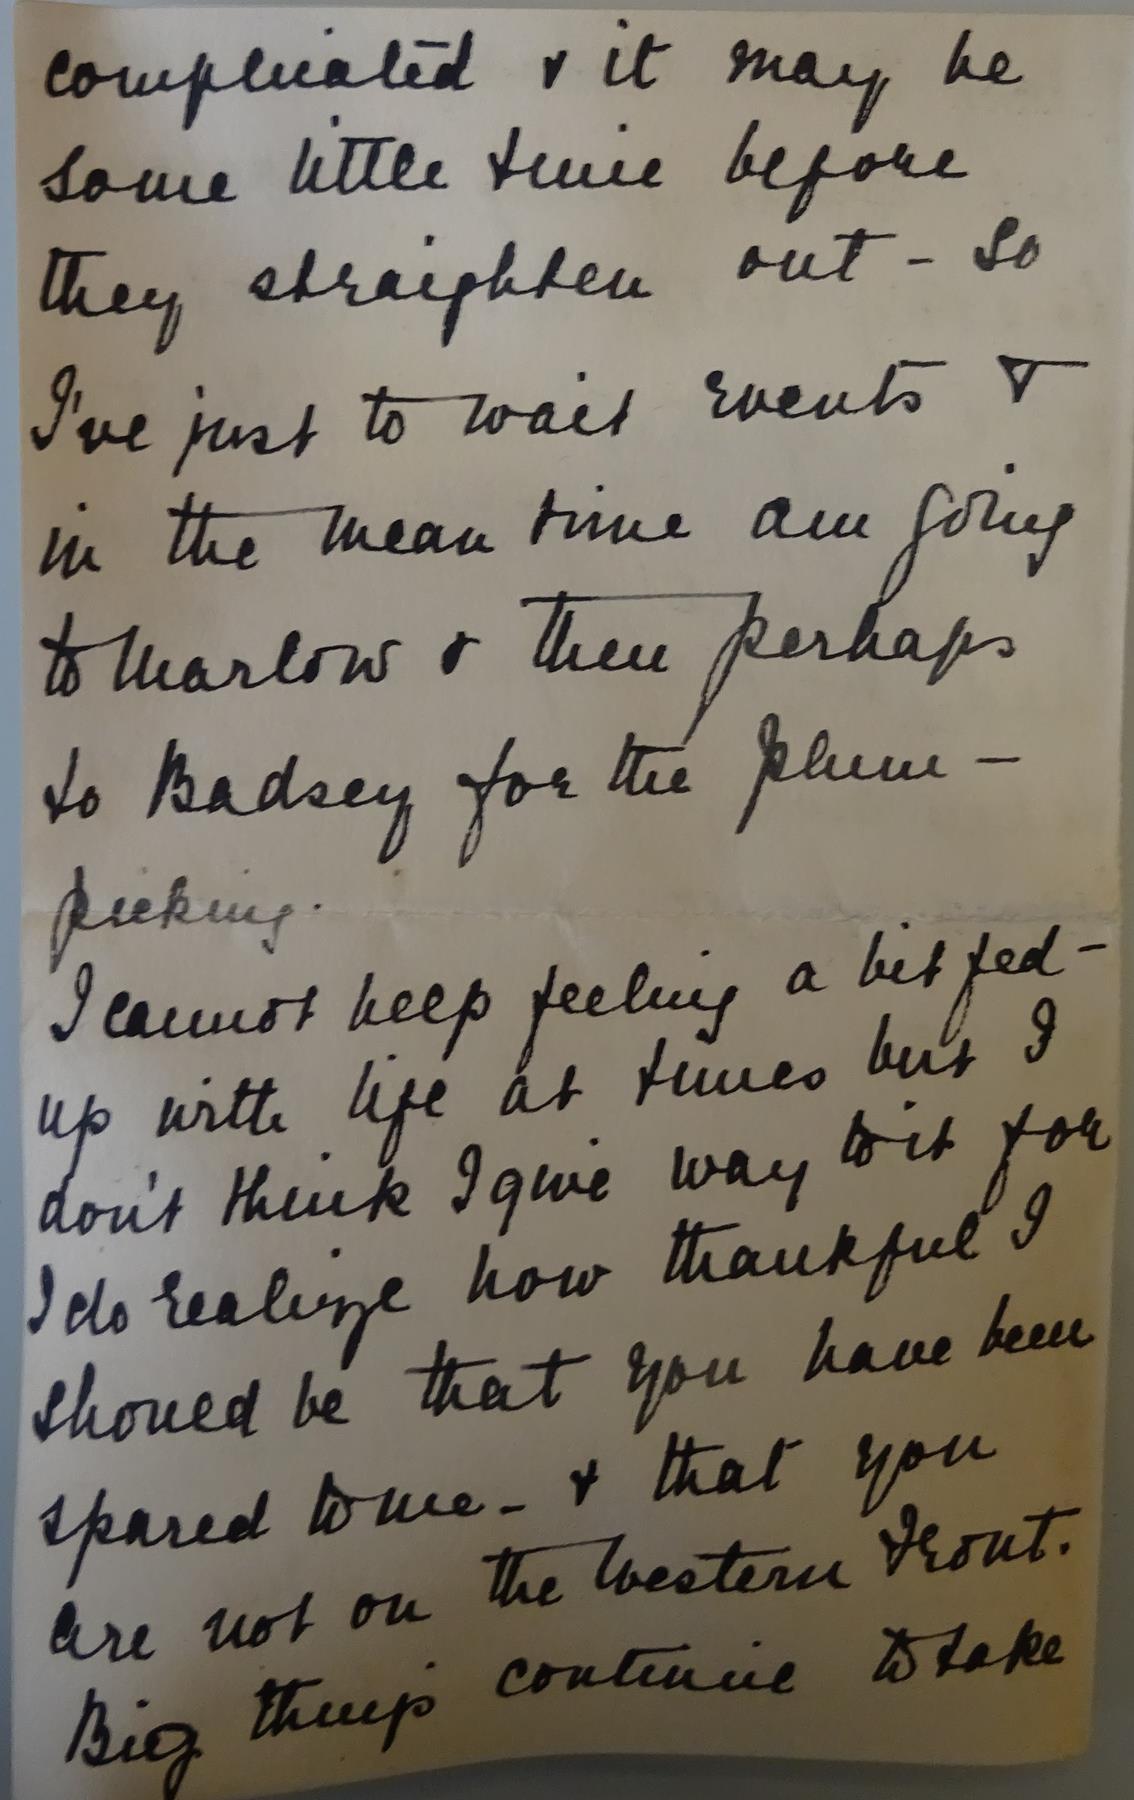 complicated & it may be
some little time before
they straighten out - So
I've just to wait events &
in the mean time am going
to Marlow & then perhaps
to Badsey for the plum -
picking.
I cannot help feeling a bit fed -
up with life at times but I
don't think I give way to it for
I do realize how thankful I
should be that you have been
spared to me - & that you
are not on the Western Front.
Big things continue to take